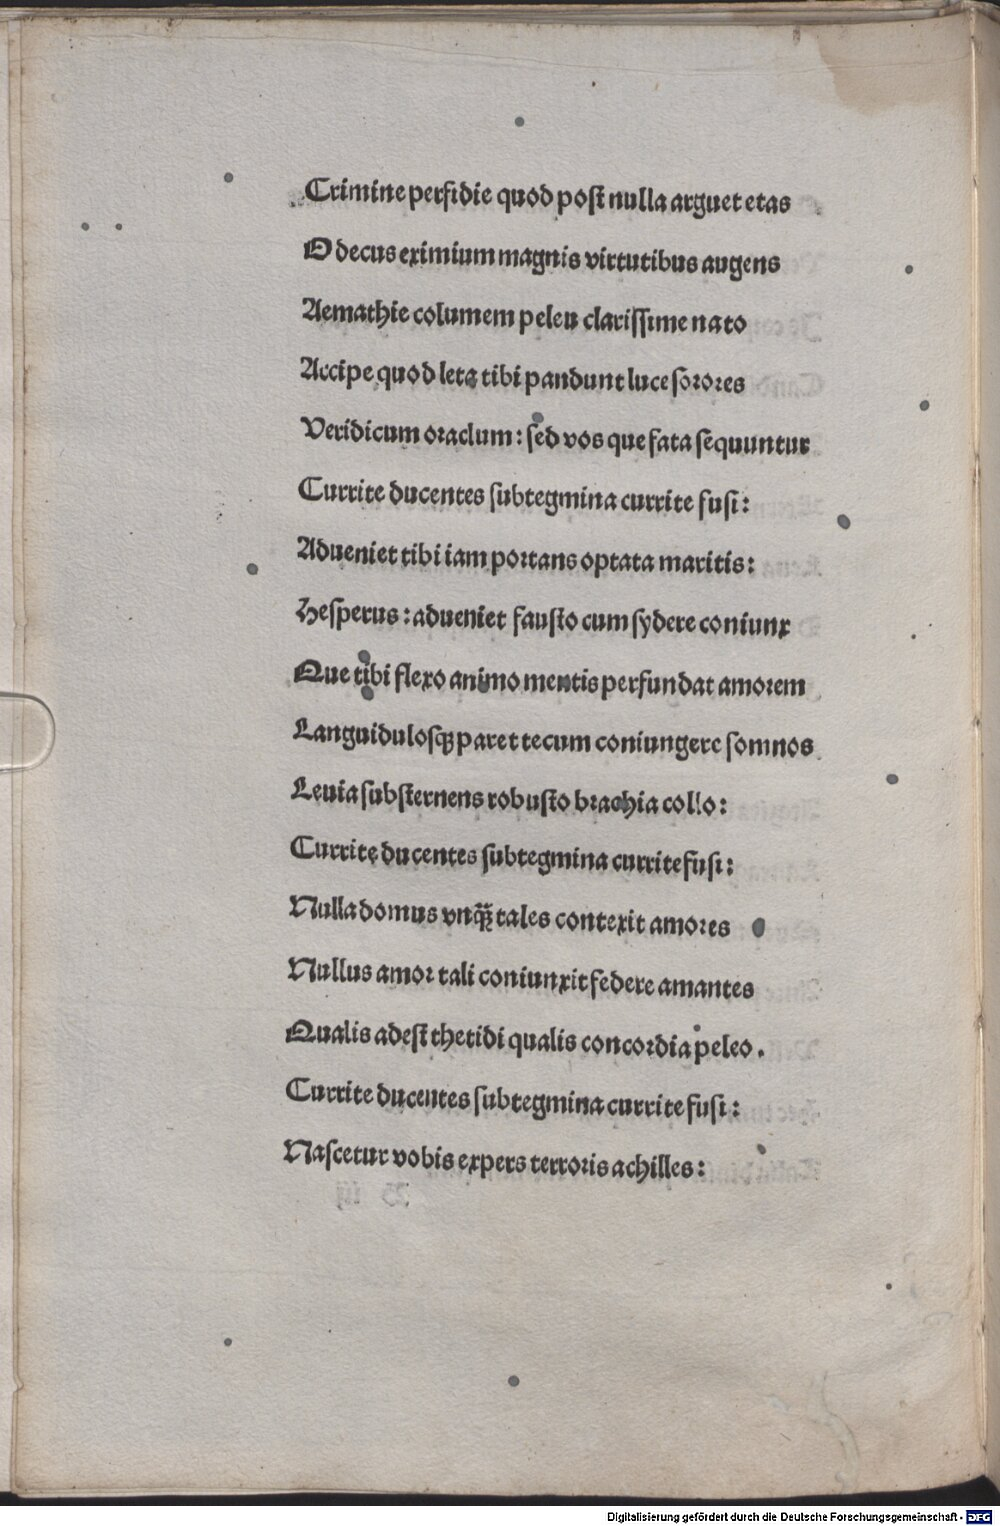 Crimine perfidie quod post nulla arguet etas
O decus eximium magnis virtutibus augens
Aemathie columem peleu clarissime nato
Accipe quod leta tibi pandunt luce sorores
Veridicum oraclum: sed vos que fata sequuntur
Currite ducentes subtegmina currite fusi:
Adueniet tibi iam portans optata maritis:
Hesperus: adueniet fausto cum sydere coniunx
Que tibi flexo animo mentis perfundat amorem
Languidulosqꝫ paret tecum coniungere somnos
Leuia substernens robusto brachia collo:
Currite ducentes subtegmina currite fusi:
Nulla domus vnqꝫ̃ tales contexit amores
Nullus amor tali coniunxit federe amantes
Qualis adest thetidi qualis concordia peleo.
Currite ducentes subtegmina currite fusi:
Nascetur vobis expers terroris achilles:
Digitalisierung gefördert durch die Deutsche Forschungsgemeinschaft - DFG